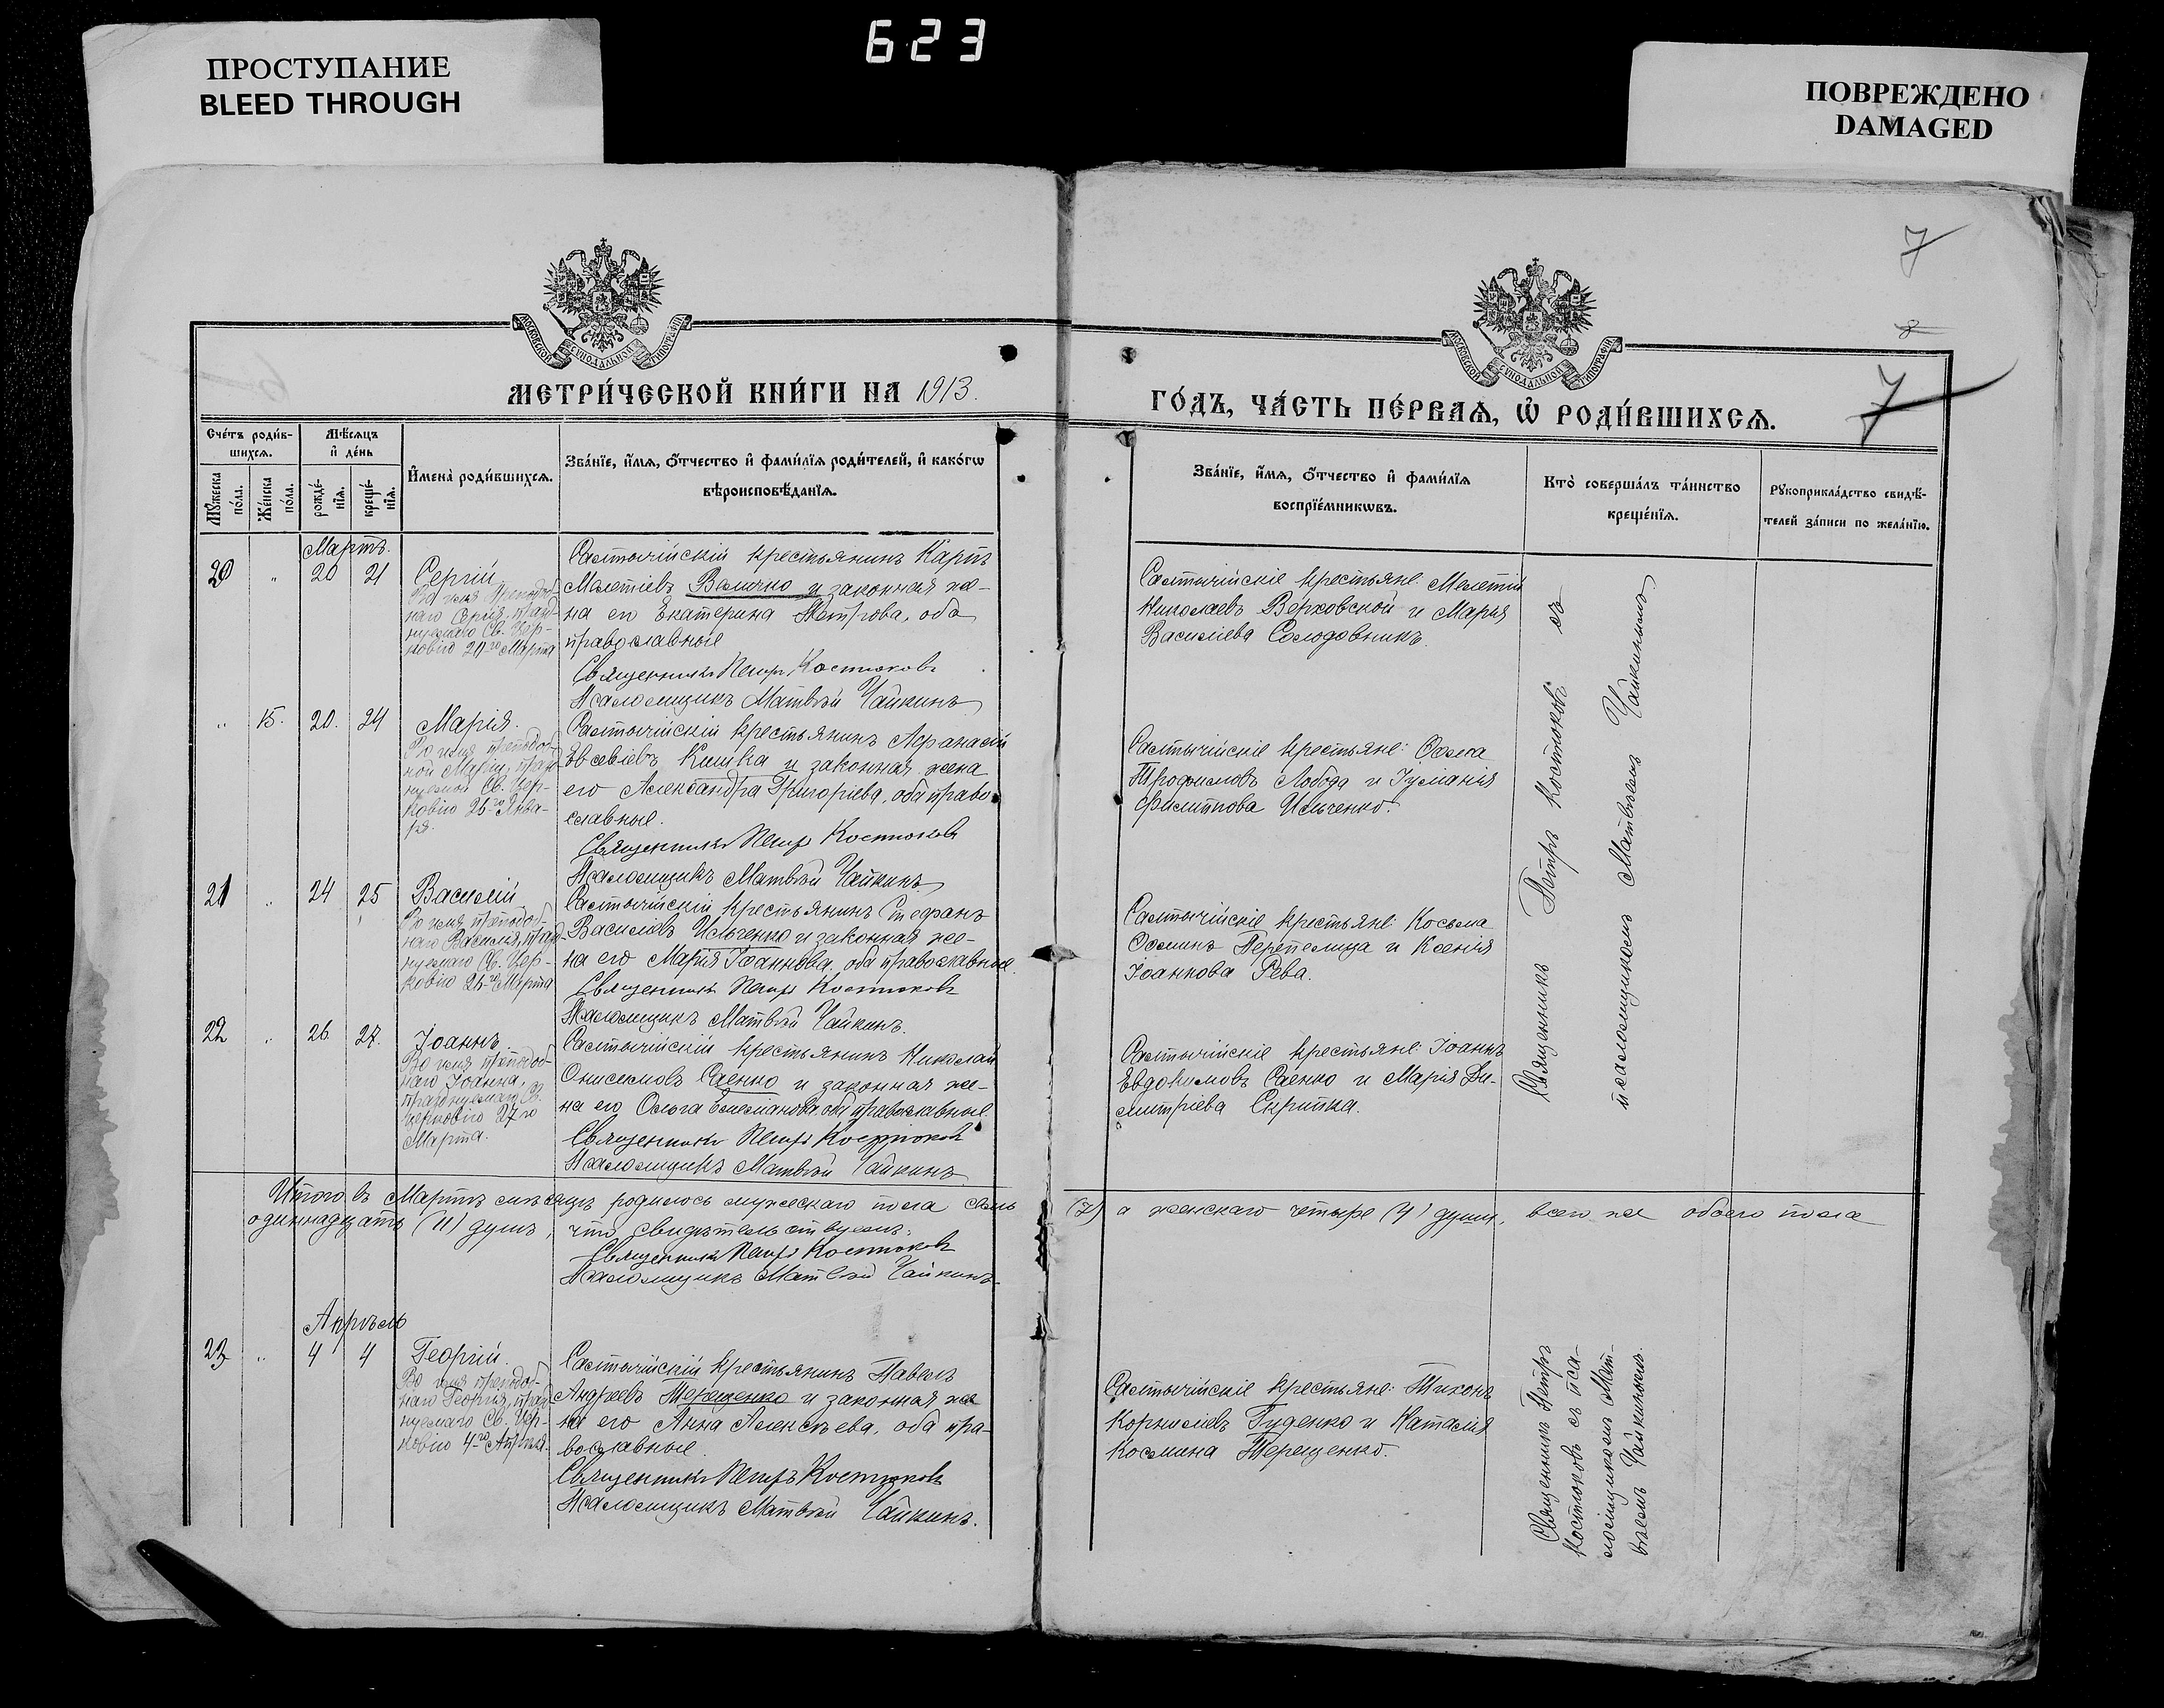 ПРОСТУПАНИЕ
BLEED THROUGH
623
ПОВРЕЖДЕНО
DAMAGED
7
8
7
МОСКОВСКОЙ СѴНОДАЛЬНОЙ ТИПОГРАФІИ
МОСКОВСКОЙ СѴНОДАЛЬНОЙ ТИПОГРАФІИ
МЕТРИ́ЧЕСКОЙ КНИ́ГИ НА 1913.
ГО́ДЪ, ЧА́СТЬ ПЕ́РВАѦ, Ѽ РОДИ́ВШИХСѦ.
Сче́тъ роди́в-
шихсѧ.
Мѣ́сѧцъ
и҆ де́нь
Мꙋ́жеска
по́ла.
Же́нска
по́ла.
рожде́-
нїѧ.
креще́-
нїѧ.
И҆мена̀ роди́вшихсѧ.
Зва́нїе, и҆́мѧ, ѻ҆́тчество и҆ фами́лїѧ роди́телей, и҆ како́гѡ
вѣроисповѣ́данїѧ.
Зва́нїе, и҆́мѧ, ѻ҆́тчество и҆ фами́лїѧ
воспрїе́мникѡвъ.
Кто̀ соверша́лъ та́инство
креще́нїѧ.
Рꙋкоприкла́дство свидѣ́-
телей за́писи по жела́нїю.
Мартъ.
20 „ 20 21 Сергій
Во имя Преподоб-
наго Сергія, празд-
нуемаго Св. Цер-
ковію 20го Марта
Салтычійскій крестьянинъ Карпъ
Мелетіевъ Величко и законная же-
на его Екатерина Петрова, оба
православные
Священникъ Петръ Костюковъ
Псаломщикъ Матвѣй Чайкинъ
Салтычійскіе крестьяне: Мелетій
Николаевъ Верховской и Марія
Василіева Солодовникъ.
„ 15. 20. 24 Марія.
Во имя преподоб-
ной Маріи, празд-
нуемой Св. Цер-
ковію 26го Янва-
ря.
Салтычійскій крестьянинъ Аѳанасій
Евсевіевъ Кишка и законная жена
его Александра Григоріева, оба право-
славные.
Священникъ Петръ Костюковъ
Псаломщикъ Матвѣй Чайкинъ
Салтычійскіе крестьяне: Ѳома
Трофимовъ Лобода и Іуліанія
Филиппова Ильченко.
21 „ 24 25 Василій
Во имя преподоб-
наго Василія, празд-
нуемаго Св. Цер-
ковію 26го Марта
Салтычійскій крестьянинъ Стефанъ
Василіевъ Ильченко и законная же-
на его Марія Іоаннова, оба православные.
Священникъ Петръ Костюковъ
Псаломщикъ Матвѣй Чайкинъ.
Салтычійскіе крестьяне: Косьма
Ѳоминъ Перепелица и Ксенія
Іоаннова Рева.
22 „ 26 27. Іоаннъ.
Во имя преподоб-
наго Іоанна,
празднуемаго Св.
Церковію 27го
Марта.
Салтычійскій крестьянинъ Николай
Онисимовъ Саенко и законная же-
на его Ольга Емеліанова, оба православные.
Священникъ Петръ Костюковъ
Псаломщикъ Матвѣй Чайкинъ
Салтычійскіе крестьяне: Іоаннъ
Евдокимовъ Саенко и Марія Ди-
митріева Скрипка.
Священникъ Петръ Костюковъ съ
псаломщикомъ Матвѣемъ Чайкинымъ
Итого въ Мартѣ мѣсяцѣ родилось мужескаго пола семь (7) а женскаго четыре (4) души, всего же обоего пола
одиннадцать (11) душъ, что свидѣтельствуемъ:
Священникъ Петръ Костюковъ
Псаломщикъ Матвѣй Чайкинъ.
Апрѣль
23 „ 4 4 Георгій.
Во имя преподоб-
наго Георгія, празд-
нуемаго Св. Цер-
ковію 4го Апрѣля.
Салтычійскій крестьянинъ Павелъ
Андреевъ Терещенко и законная же-
на его Анна Алексѣева, оба пра-
вославные.
Священникъ Петръ Костюковъ
Псаломщикъ Матвѣй Чайкинъ.
Салтычійскіе крестьяне: Тихонъ
Корниліевъ Гуденко и Наталія
Космина Терещенко.
Священникъ Петръ
Костюковъ съ пса-
ломщикомъ Мат-
вѣемъ Чайкинымъ.